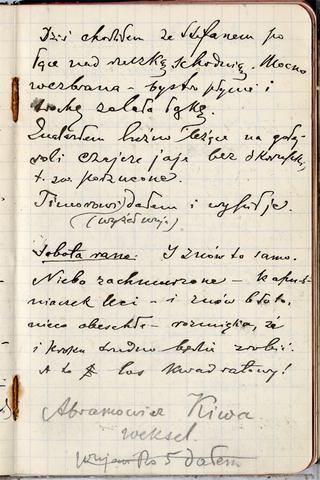 Dziś chodziłem ze Stefanem po
łące nad rzeczkę schodnią. Mocno
wezbrana – bystro płynie i
trochę zalała łąkę.
Znalazłem luźno leżące na gołej
roli czajcze jaje bez skorupki,
t. zw. porzucone.
Timorowi dałem i wypił je.
(wyżeł wuja)
Sobota rano. I znów to samo.
Niebo zachmurzone – kapuś-
niaczek leci – i znów błoto,
nieco obeschłe – rozmięka, że
i kroku trudno będzie zrobić.
A to los kwadratowy!
Abramowicz Kiwa
weksel
5 dałem